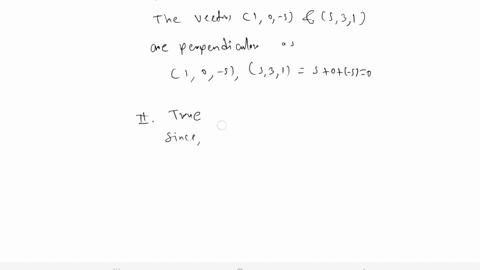 The vectors (1, 0, -5) & (5, 3, 1)
are perpendicular as
(1, 0, -5), (5, 3, 1) = 5 + 0 + (-5) = 0
II. True
Since,